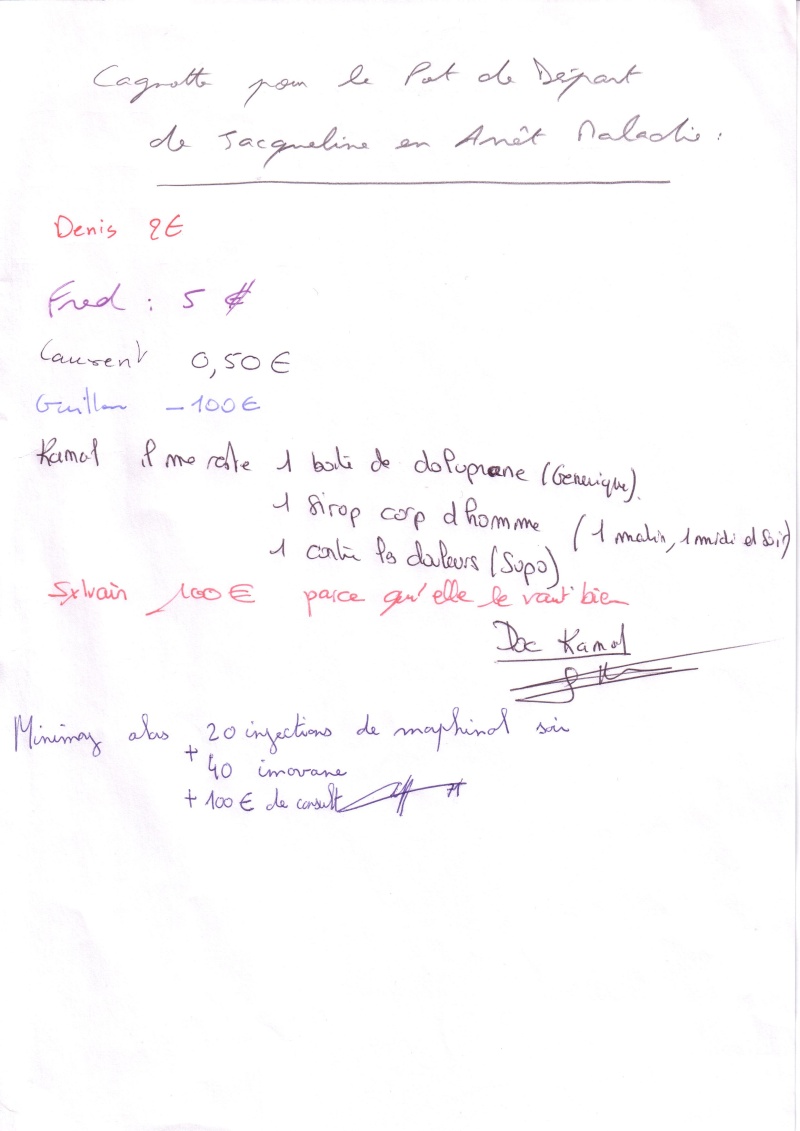 Cagnotte pour le Pot de Départ
de Jacqueline en Arrêt Maladie :
Denis 2€
Fred : 5 €
Laurent 0,50€
Guillau - 100€
Kamal il me reste 1 boite de doliprane (Generique).
1 sirop corp d'homme (1 matin, 1 midi et soir)
1 contre les douleurs (Supo)
Sylvain 100€ parce qu'elle le vaut bien
Doc Kamal
20 injections de morphinol soir
+ 40 imovane
+ 100€ de consult